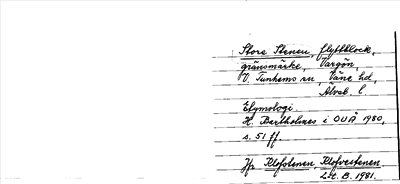 Stora Stenen, flyttblock,
gränsmärke, Vargön,
V. Tunhems sn, Väne hd,
Älvsb. l.
Etymologi
H. Bartholmes i OUÅ 1980,
s. 51 ff.
Jfr Klofstenen, Klofvestenen.
L-t. B. 1981.